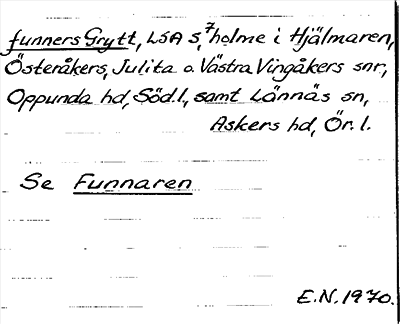 funners Grytt, LSA 5,7 holme i Hjälmaren,
Österåkers, Julita o. Västra Vingåkers snr,
Oppunda hd, Söd.l., samt Lännäs sn,
Askers hd, Ör. l.
Se Funnaren
E.N. 1970.